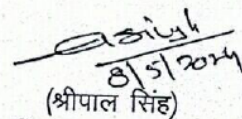 8/5/2024
(श्रीपाल सिंह)